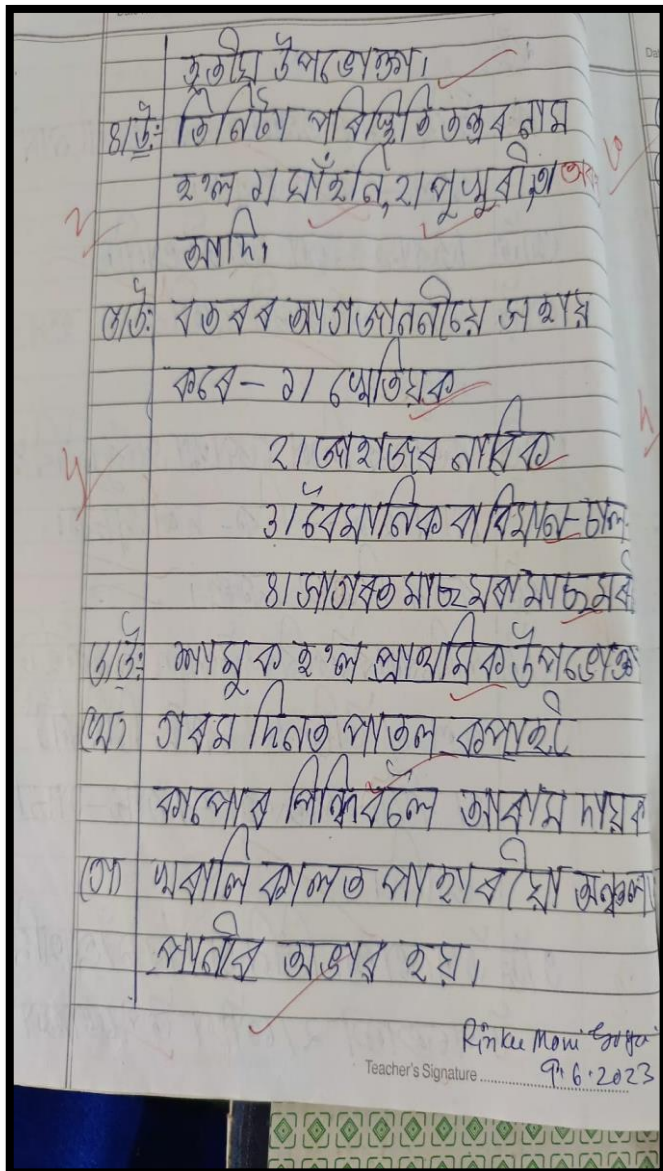 তৃতীয় উপভোক্তা।
৪।উঃ তিনিটা পৰিস্থিতি তন্ত্ৰৰ নাম
হ'ল ১। ঘাঁহনি, ২। পুখুৰী, ৩।
আদি।
৫।উঃ বতৰৰ আগজাননীয়ে সহায়
কৰে – ১। খেতিয়ক
২। জাহাজৰ নাবিক
৩। বৈমানিক বা বিমান-চাল
৪। সাগৰত মাছ মৰা মাছমৰী
৬।উঃ শামুক হ'ল প্ৰাথমিক উপভোক্তা
(খ) গৰম দিনত পাতল কপাহী
কাপোৰ পিন্ধিবলৈ আৰাম দায়ক
(গ) খৰালি কালত পাহাৰীয়া অঞ্চলত
পানীৰ অভাৱ হয়।
Rinku Moni Gogoi
Teacher's Signature 9.6.2023